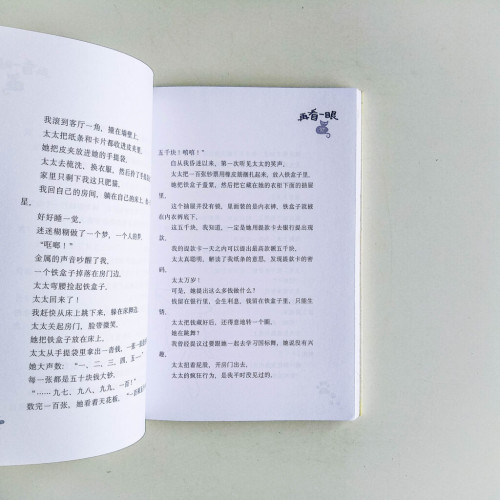 我滚到客厅一角，撞在墙壁上。
太太把纸条和卡片都收进皮夹里。
她把皮夹放进她的手提袋。
太太去梳洗、换衣服，然后拎了手提
家里只剩下我这只肥猫。
我回自己的房间，躺在自己的床上，
星。
好好睡一觉。
迷迷糊糊做了一个梦，一个人的梦。
“哐啷！”
金属的声音吵醒了我。
一个铁盒子掉落在房门边。
太太回来了！
我赶快从床上跳下来，躲在床脚边。
太太关起房门，脸带微笑。
她把铁盒子放在床上。
太太从手提袋里拿出一沓钱，一张一
她大声数：“一、二、三、四、五……
每一张都是五十块大钞。
“……九七、九八、九九、一百！”
数完一百张，她看着天花板，
再看一眼
五千块！嘻嘻！”
自从我昏迷以来，第一次听见太太的笑声。
太太把一百张钞票用橡皮筋捆扎起来，放入铁盒子里。
她把铁盒子盖紧，然后把它藏在她的衣柜下面的抽屉
里。
这个抽屉并没有锁，里面装的是内衣裤，铁盒子就藏
在内衣裤底下。
这五千块，我知道，一定是她用提款卡去银行提出现
款。
我的提款卡一天之内可以提出最高款额五千块。
太太真聪明，解读了我纸条的意思，发现提款卡的密
码。
太太万岁！
可是，她提出这么多钱做什么？
钱留在银行里，会生利息，我留在铁盒子里，只能生
锈。
太太把钱藏好后，还得意地转一个圈。
她在跳舞！
我曾经提议过要跟她一起去学习国标舞，她说没有兴
趣。
太太扭着屁股，开房门出去。
太太的疯狂行为，是我平时没见过的。